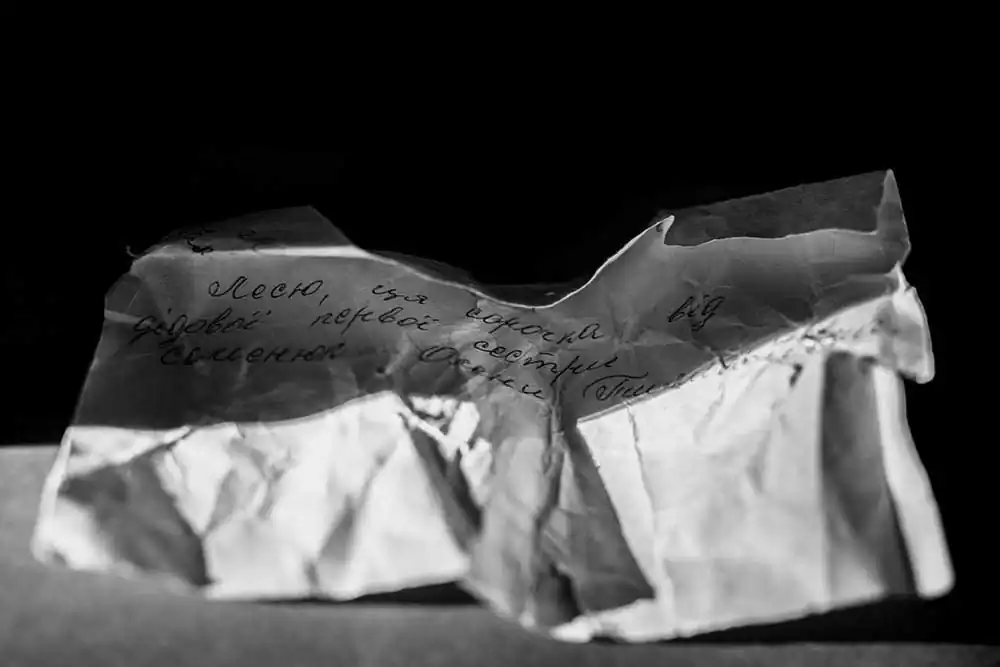 Лесю, ця сорочка від
дідової первої сестри
Семенюк Оксани